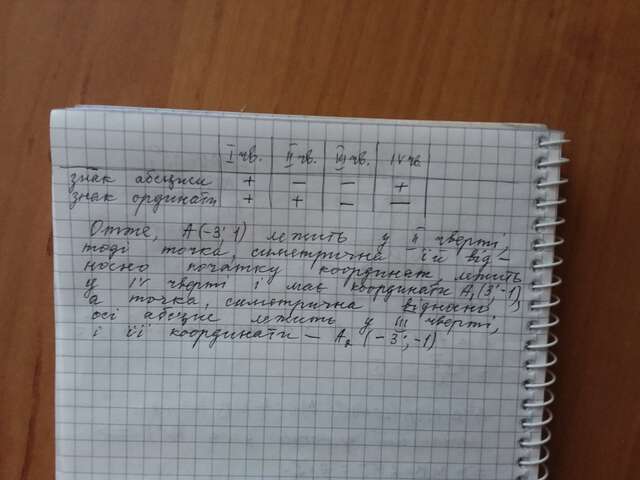 I чв. II чв. III чв. IV чв
знак абсциси + − − +
знак ординати + + − −
Отже, A(-3; 1) лежить у II чверті,
тоді точка, симетрична їй від-
носно початку координат, лежить
у IV чверті і має координати A₁(3; -1),
а точка, симетрична відносно
осі абсцис лежить у III чверті,
і її координати — A₂ (-3; -1)